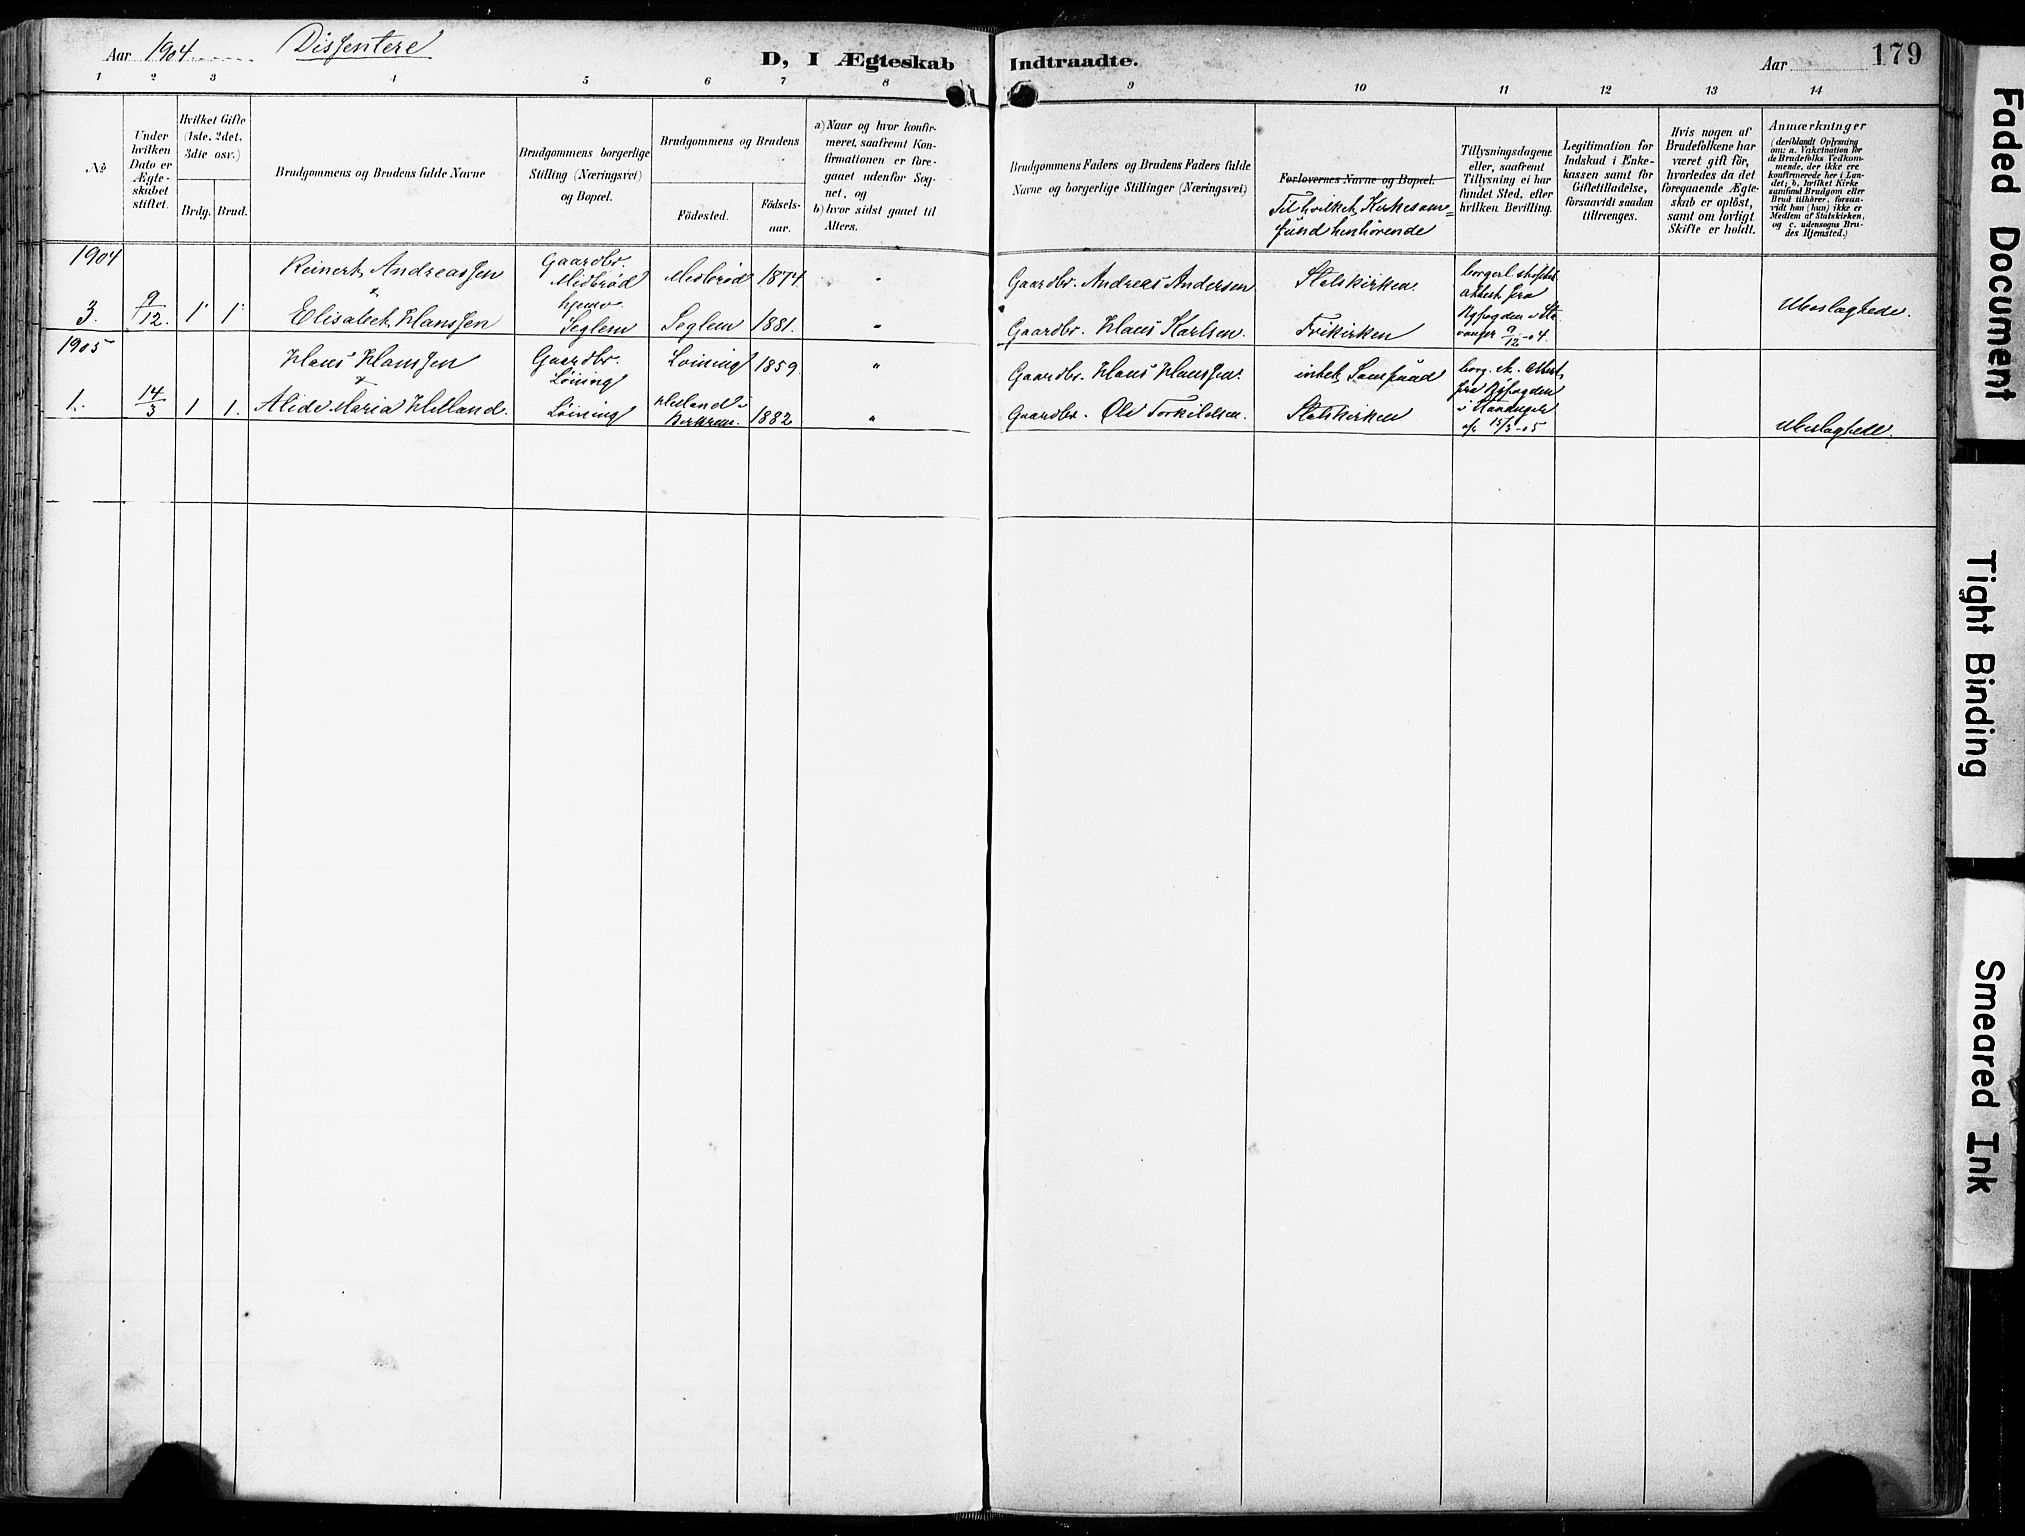 Aar 1904 Dissentere D, I Ægteskab Indtraadte. Aar 179
1 2 3 4 5 6 7 8 9 10 11 12 13 14
No
Under
hvilken
Dato er
Ægte-
skabet
stiftet.
Hvilket Gifte
(1ste, 2det,
3die osv.)
Brdg. Brud.
Brudgommens og Brudens fulde Navne
Brudgommens borgerlige
Stilling (Næringsvei)
og Bopæl.
Brudgommens og Brudens
Fødested.
Fødsels-
aar.
a) Naar og hvor konfir-
meret, saafremt Kon-
firmationen er fore-
gaaet udenfor Sog-
net, og
b) hvor sidst gaaet til
Alters.
Brudgommens Faders og Brudens Faders fulde
Navne og borgerlige Stillinger (Næringsvei)
Forlovernes Navne og Bopæl.
Til hvilket Kirkesam=
fund henhørende
Tillysningsdagene
eller, saafremt
Tillysning ei har
fundet Sted, efter
hvilken Bevilling.
Legitimation for
Indskud i Enke-
kassen samt for
Giftetilladelse,
forsaavidt saadan
tiltrænges.
Hvis nogen af
Brudefolkene har
været gift før,
hvorledes da det
foregaaende Ægte-
skab er opløst,
samt om lovligt
Skifte er holdt.
Anmærkninger
(deriblandt Oplysning
om: a. Vakcination for
de Brudefolks Vedkom-
mende, der ikke ere
konfirmerede her i Lan-
det; b. hvilket Kirke
samfund Brudgom eller
Brud tilhører, forsaa-
vidt han (hun) ikke er
Medlem af Statskirken,
og c. udensogns Bru-
des Hjemsted.)
1904
3. 9/12. 1 1
Reinert Andreassen
&
Elisabet Hanssen
Gaardbr.
Midbrød
hjemv
Seglem
Midbrød 1874. "
Seglem 1881. "
Gaardbr. Andreas Andersen
Gaardbr. Hans Karlsen.
Statskirken
Frikirken
attest fra
Byfogden i Sta
vanger 9/12-04.
Ubeslægtede.
1905
1. 14/3 1 1.
Hans Hanssen
&
Alide Maria Helland.
Gaardbr.
Løining
Løining
Løining 1859. "
Helland i
Bjerkrem. 1882 "
Gaardbr. Hans Hanssen.
Gaardbr. Ole Torkildsen.
intet Samfund
Statskirken
borg. æ. attest
fra Byfogden
i Stavanger
af 15/3-05
Ubeslægtede.
Faded Document
Tight Binding
Smeared Ink